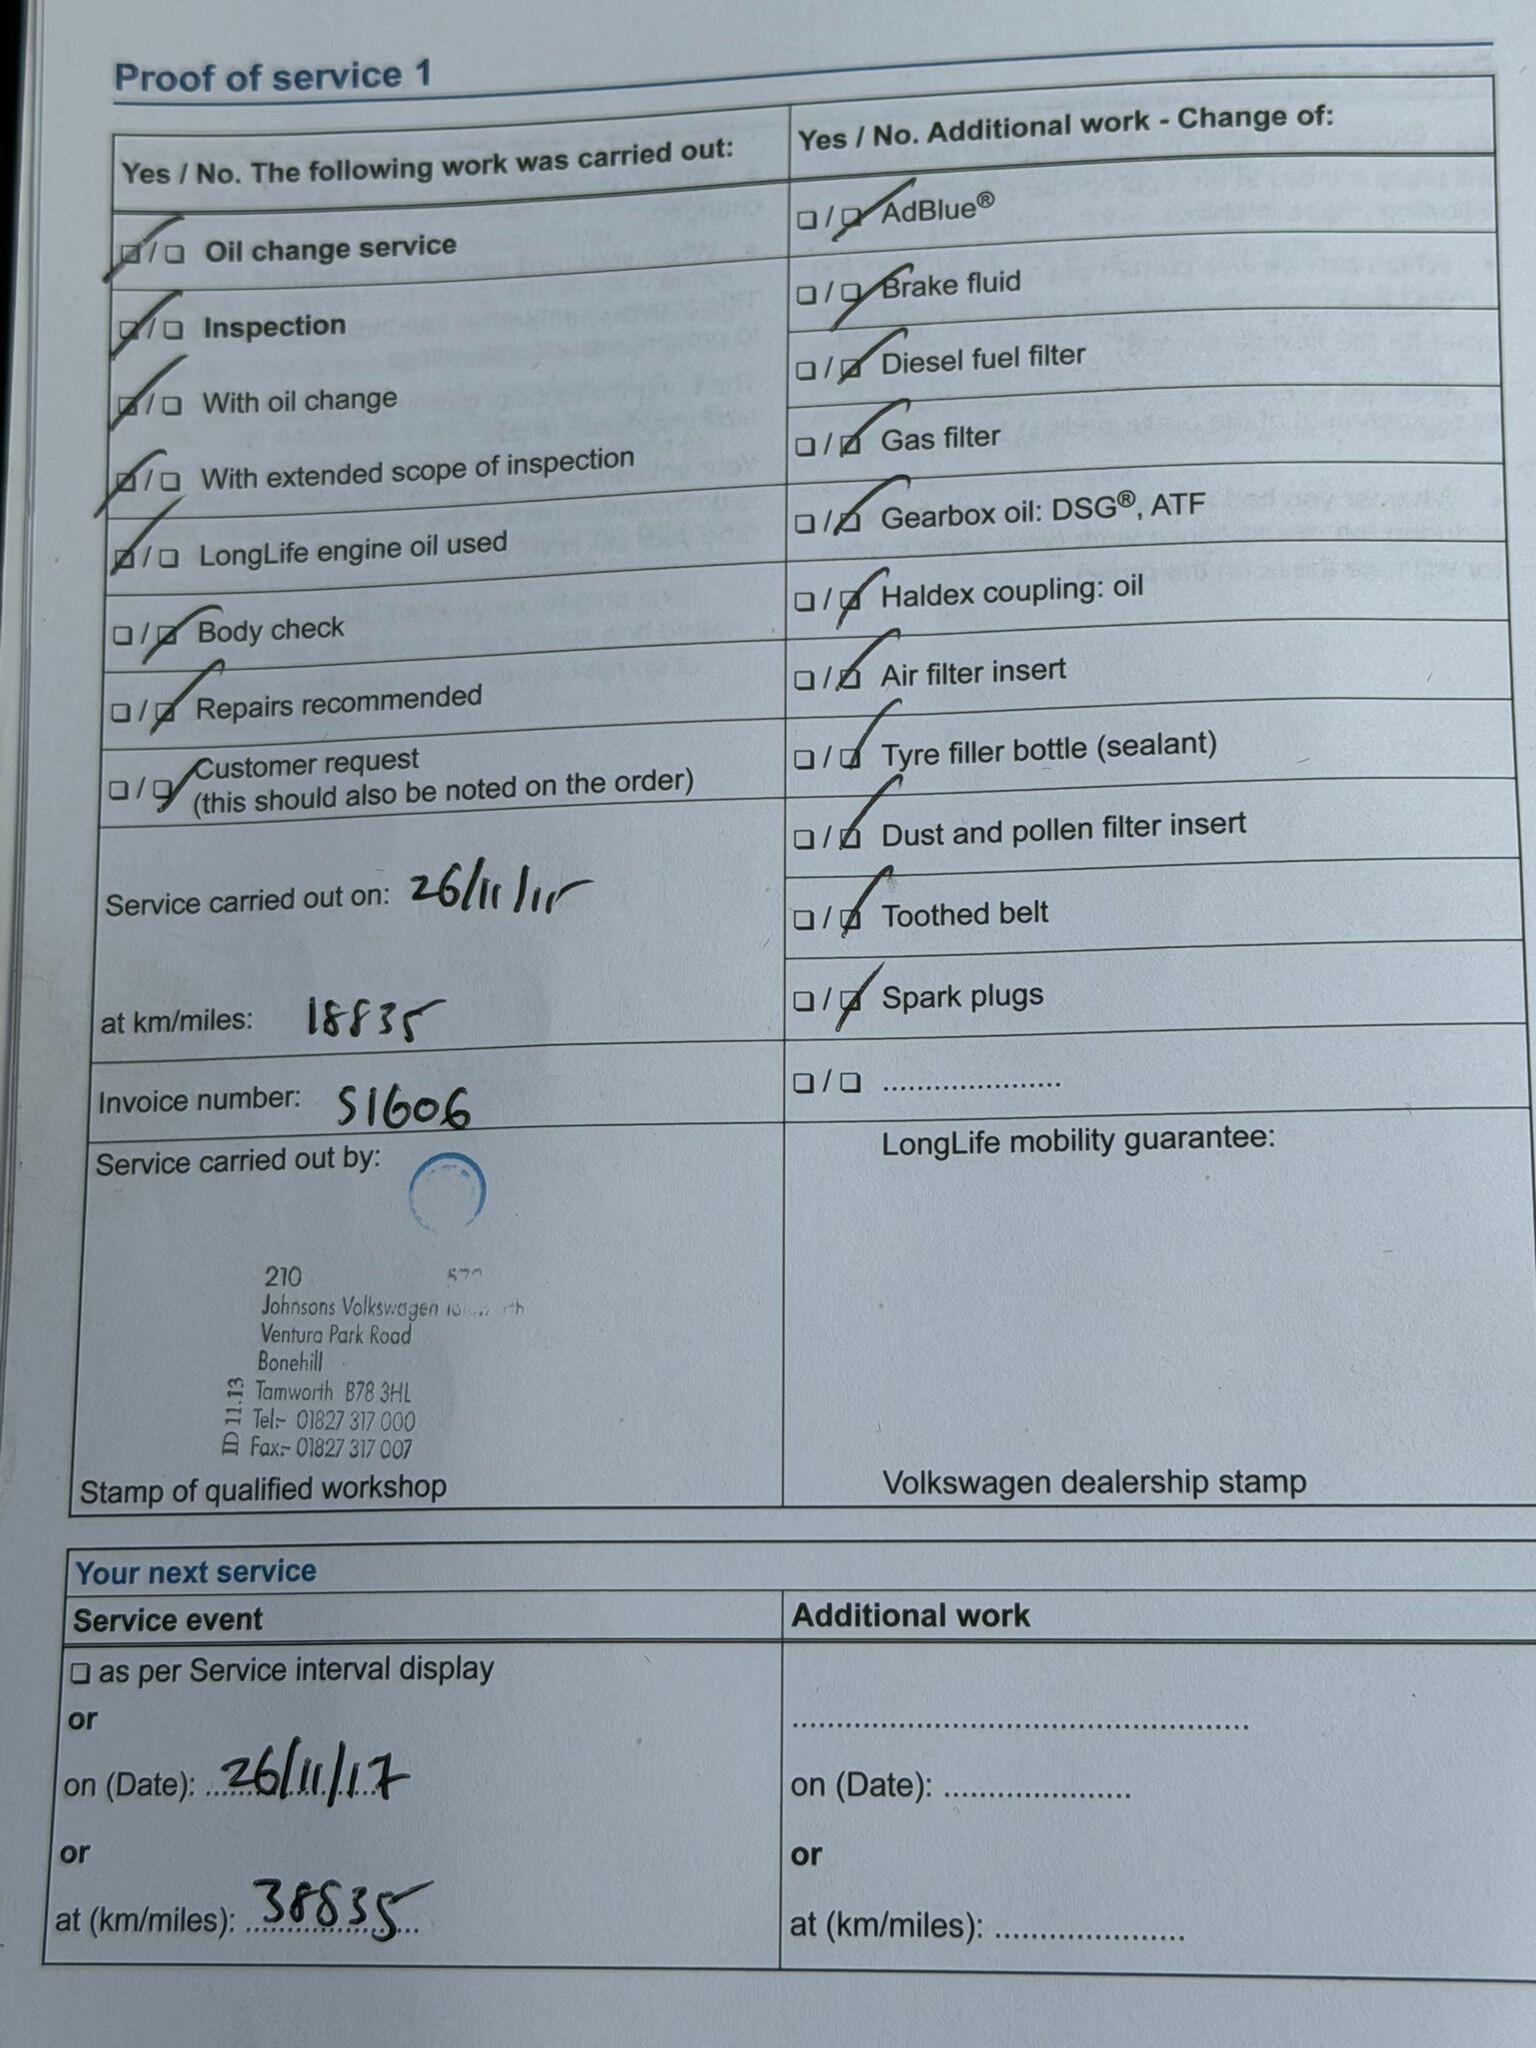 Proof of service 1
Yes / No. The following work was carried out:
☑ / ☐ Oil change service
☑ / ☐ Inspection
☑ / ☐ With oil change
☑ / ☐ With extended scope of inspection
☑ / ☐ LongLife engine oil used
☐ / ☑ Body check
☐ / ☑ Repairs recommended
☐ / ☑ Customer request
(this should also be noted on the order)
Service carried out on: 26/11/15
at km/miles: 18835
Invoice number: 51606
Service carried out by:
210
Johnsons Volkswagen
Ventura Park Road
Bonehill
Tamworth B78 3HL
Tel:- 01827 317 000
Fax:- 01827 317 007
ID 11.13
Stamp of qualified workshop
Yes / No. Additional work - Change of:
☐ / ☑ AdBlue®
☐ / ☑ Brake fluid
☐ / ☑ Diesel fuel filter
☐ / ☑ Gas filter
☐ / ☑ Gearbox oil: DSG®, ATF
☐ / ☑ Haldex coupling: oil
☐ / ☑ Air filter insert
☐ / ☑ Tyre filler bottle (sealant)
☐ / ☑ Dust and pollen filter insert
☐ / ☑ Toothed belt
☐ / ☑ Spark plugs
☐ / ☐ .....................
LongLife mobility guarantee:
Volkswagen dealership stamp
Your next service
Service event
☐ as per Service interval display
or
on (Date): 26/11/17
or
at (km/miles): 38835
Additional work
on (Date): .....................
or
at (km/miles): .....................